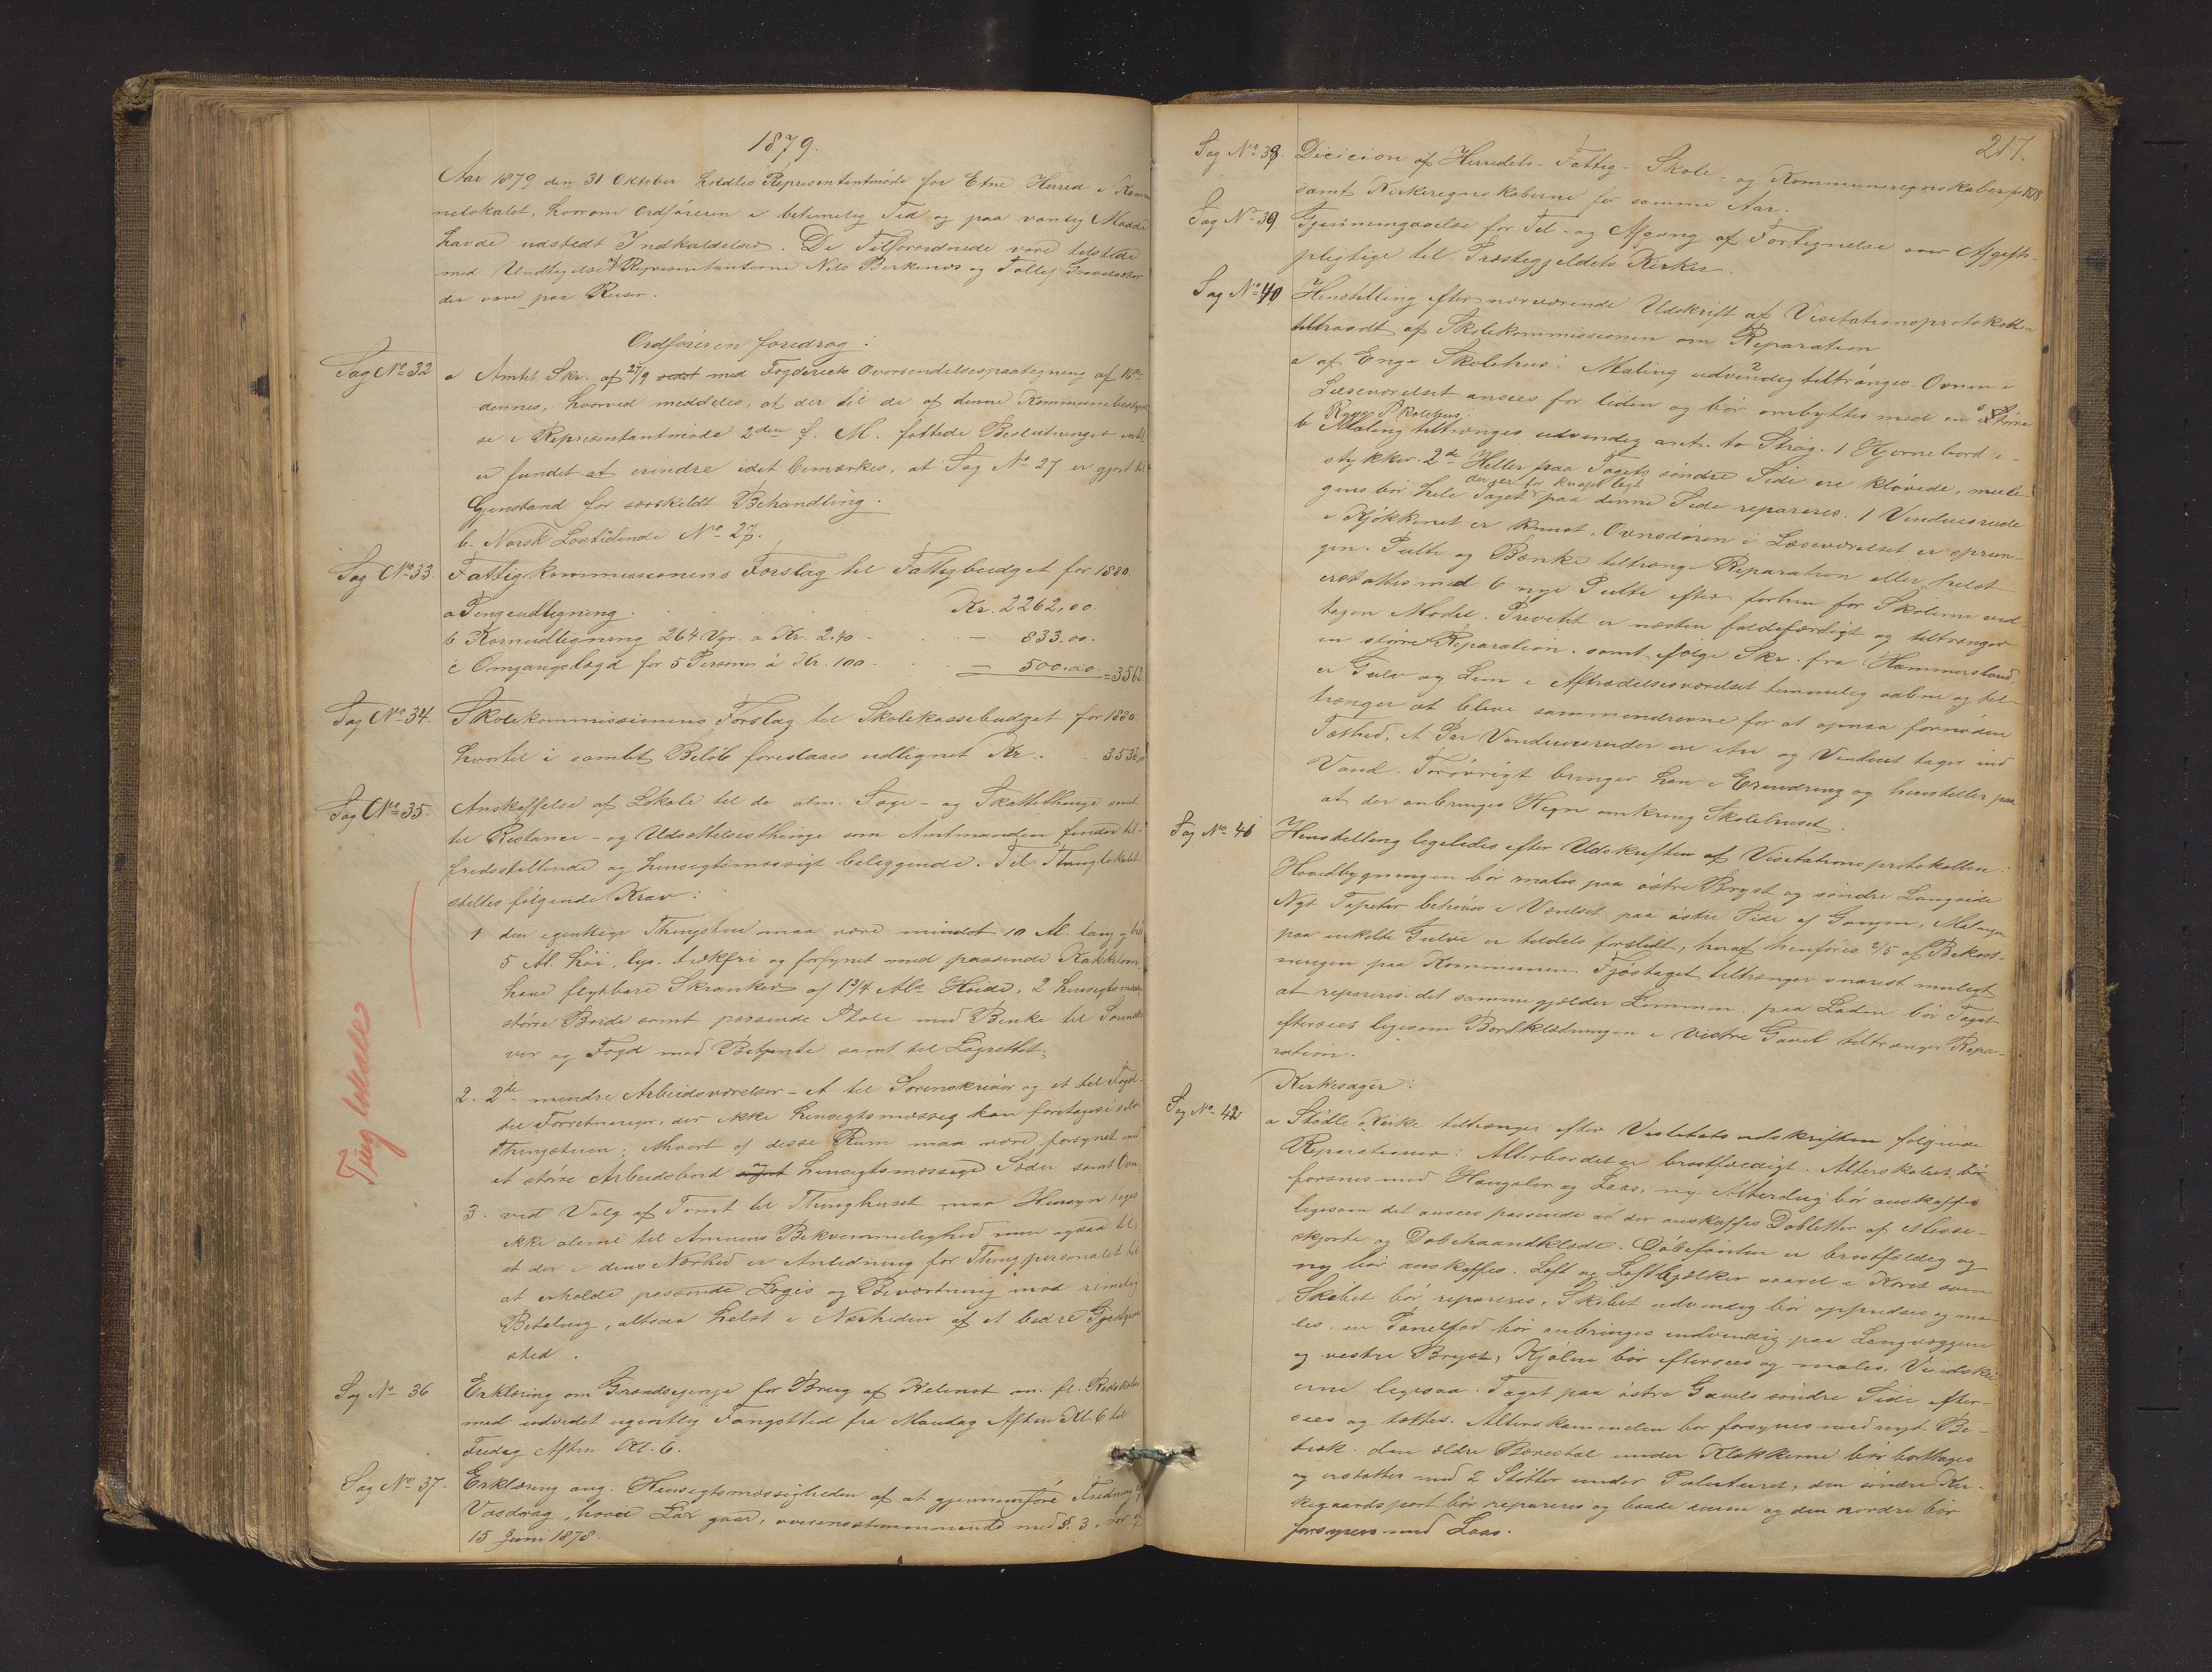 1879.
Aar 1879 den 31 Oktober holdtes Representantmøde for Etne Herred i Kom
nelokalet, hvorom Ordføreren i betimelig Tid og paa vanlig Maade
havde udstedt Indkaldelser. De Tilforordnede vare tilstede
med Undtagelse af Representanterne Nils Birkenes og Tollef
der vare paa Reise.
Ordføreren foredrog:
Sag No 32 a Amtets Skr. af 27/9 med Fogderiets Oversendelsespaategning af 16de
dennes, hvorved meddeles, at der til de af denne Kommunebestyrel
se i Representantmøde 2den f. M. fattede Beslutninger intet
er fundet at erindre idet bemærkes, at Sag No 27 er gjort til
Gjenstand for særskildt Behandling.
b. Norsk Lovtidende No 27.
Sag No 33. Fattigkommissionens Forslag til Fattigbudget for 1880.
a Pengeudligning. Kr. 2262,00.
b Kornudligning 264 Vgr. a Kr. 2,40 - — 833,00.
c Omgangslægd for 5 Personer á Kr. 100 - — 500.00 = 3562
Sag No 34. Skolekommissionens Forslag til Skolekassebudget for 1880.
hvortil i samlet Beløb foreslaaes udlignet Kr. - 3538,00
Sag No 35. Anskaffelse af Lokale til de alm. Sage- og Skattethinge samt
til Restance- og Udsættelsesthinge som Amtmanden finder til-
fredsstillende og hensigtsmæssigt beliggende. Til Thinglokalet
stilles følgende Krav:
1 den egentlige Thingstue maa være mindst 10 Al. lang og
5 Al. høi, lys, trækfri og forsynet med passende Kakkelovn
have flytbare Skranker af 1 3/4 Als Høide, 2 hensigtsmæssig
større Borde samt passende Stole med Benke til Sorenskri
ver og Fogd med Betjente samt til Lagrettet.
2. 2de mindre Arbeidsværelser - et til Sorenskriver og et til Foged
til Forretninger, der ikke hensigtsmæssig kan foretages i selve
Thingstuen; ethvert af disse Rum maa være forsynet med
et større Arbeidsbord og hensigtsmæssige Sæder samt Ovn.
3. ved Valg af Tomt til Thinghuset maa Hensyn tages
ikke alene til Almuens Bekvemmelighed men ogsaa til
at der i dens Nærhed er Anledning for Thingpersonalet til
at erholde passende Logis og Beværtning mod rimelig
Betaling, altsaa helst i Nærheden af et bedre Gjestgiver
sted.
Ting lokaler
Sag No 36 Erklæring om Grændsegange for Brug af Kilenot m. fl. Redskaber
med udvidet ugentlig Fangsttid fra Mandag Aften Kl. 6 til
Fredag Aften Kl. 6.
Sag No 37. Erklæring ang. Hensigtsmæssigheden af at gjennemføre Fredning af
Vasdrag, hvori Lax gaar, overensstemmende med §. 3 i Lov af
15 Juni 1878.
217.
Sag No 38. Dicicion af Herredets- Fattig- Skole- og Kommuneregnskaber for 1878
samt Kirkeregnskaberne for samme Aar.
Sag No 39 Gjennemgaaelse for Til- og Afgang af Fortegnelse over Afgifts-
pligtige til Præstegjeldets Kirker.
Sag No 40 Henstilling efter nærværende Udskrift af Visitationsprotokollen
tiltraadt af Skolekommissionen om Reparation
a af Enge Skolehus: Maling udvendig tiltrænges. Ovnen i
Læseværelset ansees for liden og bør ombyttes med en større
b Rygg Skolehus:
Maling tiltrænges udvendig ant. to Strøg. 1 Hjørnebord i-
stykker. 2de Heller paa Tagets søndre Side ere kløvede, muli-
gens bør hele Taget paa denne Side repareres. 1 Vinduesrude
i Kjøkkenet er knust. Ovnsdøren i Læseværelset er sprun-
gen. Pulte og Bænke tiltrænge Reparation eller helst
erstattes med 6 nye Pulte efter forhen for Skolerne ved-
tagen Model. Privetet er næsten faldefærdigt og tiltrænger
en større Reparation. samt ifølge Skr. fra Hammersland
er Gulv og Lem i Aftrædelsesværelset temmelig aabne og til-
trænger at blive sammendrevne for at opnaa fornøden
Tæthed, et Par Vinduesruder ere itu og Vinduet tager ind
Vand. Forøvrigt bringer han i Erindring og henstiller paa
at der anbringes Hegn omkring Skolehuset.
Sag No 41 Henstilling ligeledes efter Udskriften af Visitationsprotokollen:
Hovedbygningen bør males paa østre Bryst og søndre Langside
Nyt Tapeter behøves i Værelset paa østre Side af Gangen, Malingen
paa enkelte Gulve er tildels forslidt, heraf henføres 2/5 af Bekost-
ningen paa Kommunen. Fjøstaget tiltrænger snarest muligt
at repareres. det samme gjælder Lemmen. paa Laden bør Taget
eftersees ligesom Bordklædningen i vestre Gavel tiltrænger Repa-
ration.
Kirkesager:
Sag No 42 a Stødle Kirke tiltrænger efter Visitatsudskriften følgende
Reparationer: Alterbordet er brøstfældigt. Alterskabet bør
forsynes med Hængsler og Laas, ny Alterdug bør anskaffes
ligesom det ansees passende at der anskaffes Dobletter af Messe-
skjorte og Døbehaandklæde. Døbefonten er brøstfældig og
ny bør anskaffes. Loft og Loftbjælker saavel i Koret som
Skibet bør repareres, Skibet udvendig bør oppudses og ma-
les. en Panelfad bør anbringes indvendig paa Langvæggene
og vestre Bryst, Kjølen bør eftersees og males. Vindski-
erne ligesaa. Taget paa østre Gavels søndre Side efter-
sees og tættes. Alterskammelen bør forsynes med nyt Be-
træk. den ældre Bærestol under Klokkerne bør borttages
og erstattes med 2 Støtter under Pulpituret, den søndre Kir-
kegaardsport bør repareres og baade denne og den nordre bør
forsynes med Laas.